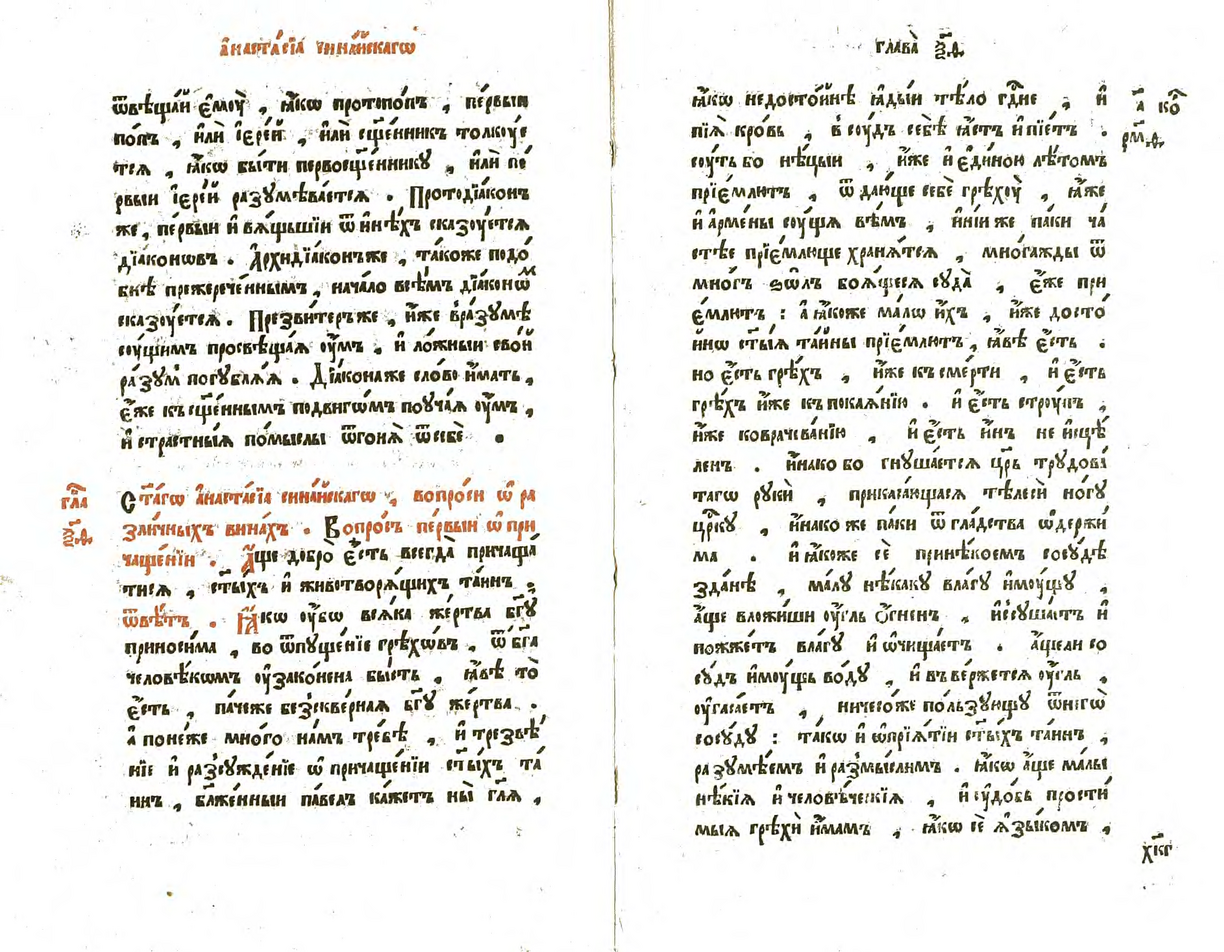 а҆наста́сїѧ сїна́йскагѡ
ѿвѣща́й є҆мꙋ̀ , ꙗ҆́кѡ протопо́пъ , пе́рвыи
по́пъ , и҆лѝ і҆ере́й , и҆лѝ сщ҃е́нникъ толкꙋ́е
тсѧ , ꙗ҆́кѡ бы́ти первосщ҃е́нникꙋ , и҆лѝ пе́
рвыи і҆ере́й разꙋмѣва́етсѧ . Протодїа́конъ
же , пе́рвыи и҆ вѧ́щьшїи ѿ и҆нѣ́хъ сказꙋ́етсѧ
дїа́конѡвъ . А҆рхидїа́конъже , та́коже подо́
бнѣ прежерече́ннымъ , нача́ло всѣ́мъ дїа́конѡм
сказꙋ́етсѧ . Презви́теръже , и҆́же вразꙋмѣ̀
сꙋ́щимъ просвѣща́ѧ ᲂу҆́мъ , и҆ ло́жныи сво́й
ра́зꙋм погꙋблѧ́ѧ . Дїа́конаже сло́во и҆́мать ,
є҆́же къ сщ҃е́ннымъ по́двигѡмъ поꙋча́ѧ ᲂу҆́мъ ,
и҆ стра́стныѧ по́мыслы ѿгонѧ̀ ѿсебѐ .
гла
ѯ҃д
Ст҃а́гѡ а҆наста́сїѧ сина́йскагѡ , вопро́си ѡ҆ ра
зли́чныхъ вина́хъ . Вопро́съ пе́рвыи ѡ҆ при
чаще́нїи . А҆́ще добро̀ є҆́сть всегда̀ причаща́
тисѧ , ст҃ы́хъ и҆ животворѧ́щихъ та́инъ ;
ѿвѣ́тъ . Ꙗ҆́кѡ ᲂу҆́бѡ всѧ́ка же́ртва бг҃ꙋ
приноси́ма , во ѿпꙋще́нїе грѣхѡ́въ , ѿ бг҃а
человѣ́кѡмъ ᲂу҆зако́нена бы́сть , ꙗ҆́вѣ то̀
є҆́сть , па́чеже безскве́рная бг҃ꙋ же́ртва .
а҆ поне́же мно́го на́мъ тре́бѣ , и҆ трезвѣ́
нїе и҆ разсꙋжде́нїе ѡ҆ причаще́нїи ст҃ы́хъ та́
инъ , бл҃же́нныи па́велъ ка́жетъ ны̀ гл҃ѧ ,
глава̀ ѯ҃д
ꙗ҆́кѡ недосто́йнѣ ꙗ҆ды́и тѣ́ло гдⷭ҇не , и҆
пїѧ̀ кро́вь , в сꙋ́дъ себѣ̀ ꙗ҆́стъ и҆ пїе́тъ .
а҃ коⷬ҇
рм҃д
сꙋ́ть бо нѣ́цыи , и҆́же и҆ є҆ди́ною лѣ́томъ
прїе́млютъ , ѿ даю́ще себѐ грѣхꙋ̀ , ꙗ҆́же
и҆ а҆рме́ны сꙋ́щѧ вѣ́мъ , и҆ні́и же па́ки ча́
стѣе прїе́млюще хранѧ́тсѧ , мно́гажды ѿ
мно́гъ ѕѡ́лъ боѧ́щесѧ сꙋда̀ , є҆́же при
е́млютъ : а҆ ꙗ҆́коже ма́лѡ и҆́хъ , и҆́же досто́
йнѡ ст҃ы́ѧ та́йны прїе́млютъ , ꙗ҆́вѣ є҆́сть .
но є҆́сть грѣ́хъ , и҆́же къ сме́рти , и҆ є҆́сть
грѣ́хъ и҆́же къ покаѧ́нїю . и҆ є҆́сть стрꙋ́пъ ,
и҆́же ковра́чева́нїю , и҆ є҆́сть и҆́нъ не и҆сцѣ́
ленъ . и҆на́ко бо гнꙋша́етсѧ цр҃ь трꙋдова́
тагѡ рꙋкѝ , прикаса́ющаѧсѧ тѣ́леси но́гꙋ
цр҃кꙋ , и҆на́ко же па́ки ѿ гла́дства ѡ҆держи́
ма . и҆ ꙗ҆́коже сѐ при нѣ́коемъ сосꙋ́дѣ
зда́нѣ , ма́лꙋ нѣ́какꙋ вла́гꙋ и҆мꙋ́щꙋ ,
а҆́ще вложи́ши ᲂу҆́гль ѻ҆́гненъ , и҆сꙋша́етъ и҆
пожже́тъ вла́гꙋ и҆ ѡ҆чища́етъ . а҆́щели со
сꙋ́дъ и҆мꙋ́щь во́дꙋ , и҆ въве́ржетсѧ ᲂу҆́гль ,
ᲂу҆гаса́етъ , ничесо́же по́льзꙋющꙋ ѿнегѡ̀
сосꙋ́дꙋ : та́кѡ и҆ ѡ҆прїѧ́тїи ст҃ы́хъ та́инъ ,
разꙋмѣ́емъ и҆ размы́слимъ . ꙗ҆́кѡ а҆́ще ма́лы
нѣ́кїѧ и҆ человѣ́ческїѧ , и҆ ꙋдо́бь прости́
мыѧ грѣхѝ и҆́мамъ , ꙗ҆́кѡ сѐ ѧ҆зы́комъ ,
хк҃г